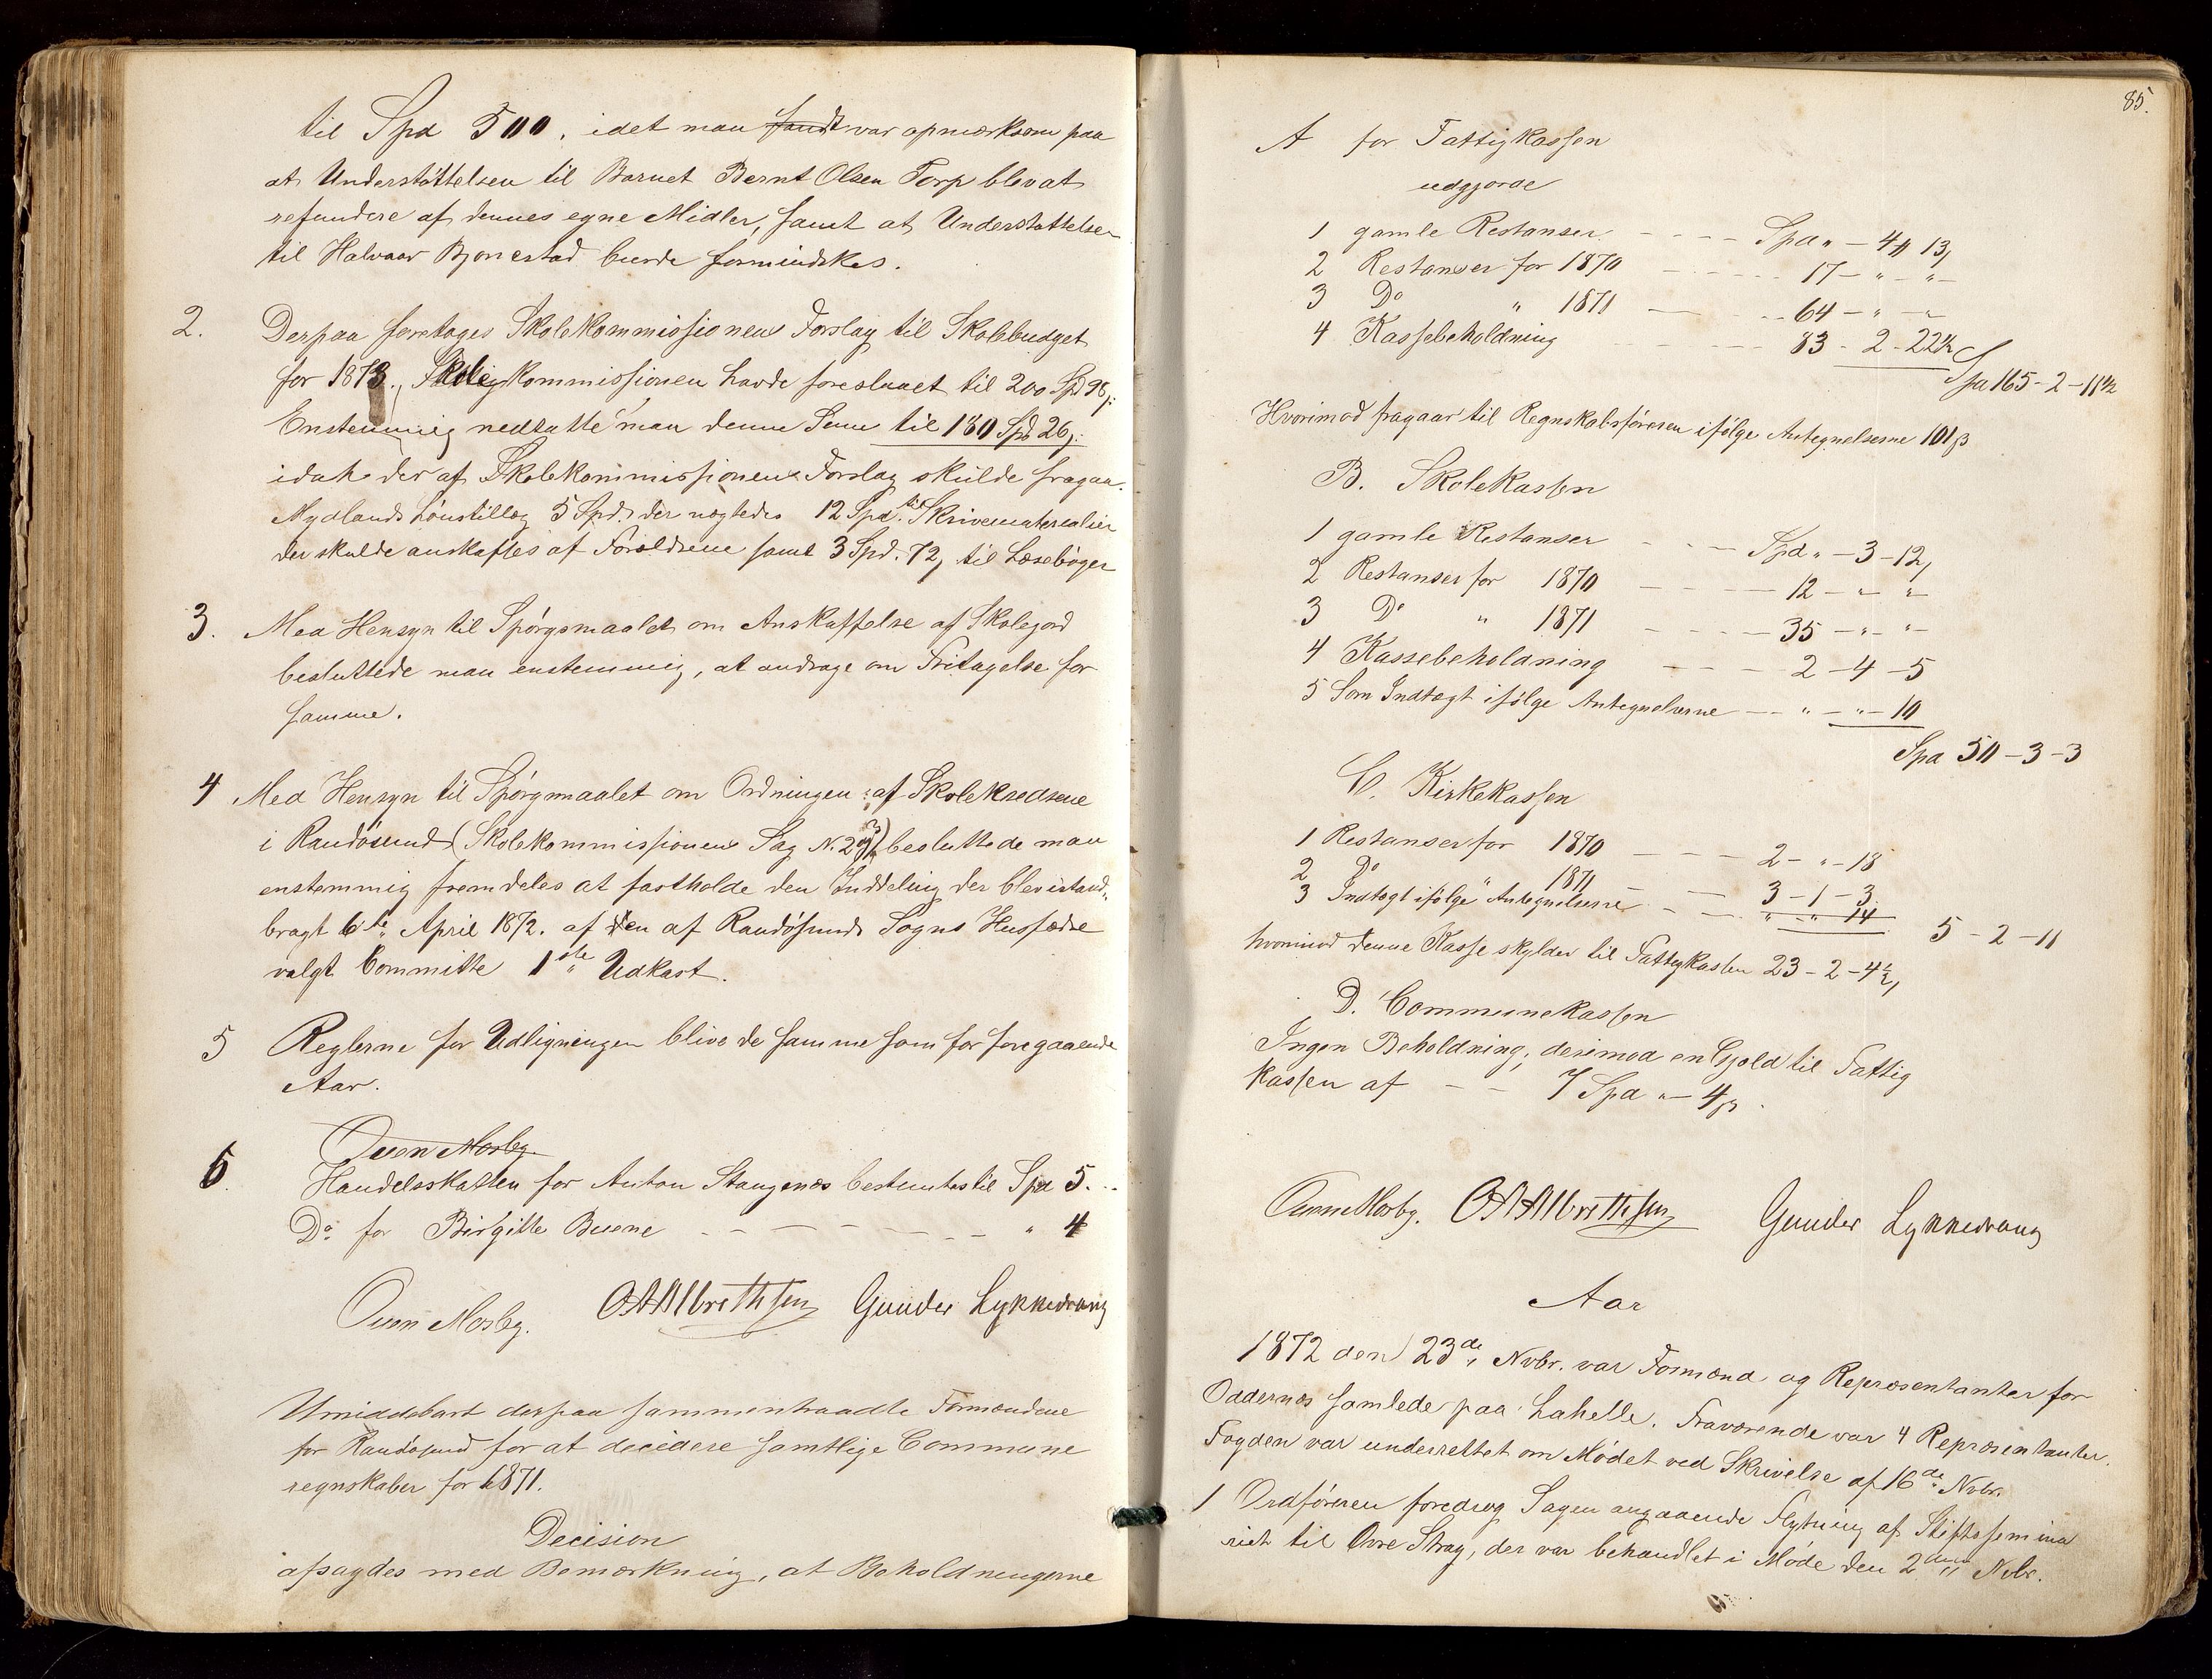 til Spd 500, idet man fandt var opmærksom paa
at Understøttelsen til Barnet Bernt Olsen Torp blev at
refundere af dennes egne Midler, samt at Understøttelsen
til Halvaar Bjonestad burde formindskes.
2. Derpaa foretoges Skolekommissionens Forslag til Skolebudget
for 1873. Skolekommissionen havde foreslaaet til 200 Spd 98 ß:
Enstemmig nedsatte man denne Sum til 180 Spd 26 ß:
idet der af Skolekommissionens Forslag skulde fragaa.
Nydlands Lønstillæg 5 Spd. der nægtedes 12 Spd. til Skrivematerialier
der skulde anskaffes af Forældrene samt 3 Spd. 72 ß til Læsebøger
3. Med Hensyn til Spørgsmaalet om Anskaffelse af Skolejord
besluttede man enstemmig, at andrage om Fritagelse for
samme.
4 Med Hensyn til Spørgmaalet om Ordningen af Skolekredsene
i Randøsund (Skolekommissionens Sag N. 2) besluttede man
enstemmig fremdeles at fastholde den Inddeling der blev istand-
bragt 6te April 1872. af den af Randøsunds Sogns Husfædre
valgt Committe 1ste Udkast.
5 Reglerne for Udligningen blive de samme som for foregaaende
Aar.
Ouen Mosby.
6. Handelsskatten for Anton Stangenes bestemtes til Spd 5. "
Do for Birgitte Buene - - - - - " 4
Ouen Mosby. O A Albrethsen Gunder Lykkedrang
Umiddelbart derpaa sammentraadte Formændene
for Randøsund for at decidere samtlige Commune
regnskaber for 1871.
Decision
afsagdes med Bemærkning, at Beholdningerne
85.
A for Fattigkassen
udgjorde
1 gamle Restanser - - - - Spd " - 4 " 13 ß
2 Restanser for 1870 - - - - 17 - " - " -
3 Do " 1871 - - - 64 - " - " -
4 Kassebeholdning - - - - 83 - 2 - 22½
Spd 165 - 2 - 11½
Hvorimod fragaar til Regnskabsføreren ifølge Antegnelserne 101 ß
B. Skolekassen
1 gamle Restanser - - - Spd " - 3 - 12 ß
2 Restanser for 1870 - - - - 12 - " - "
3 Do " 1871 - - - - 35 - " - " -
4 Kassebeholdning - - - - 2 - 4 - 5
5 Som Indtægt ifølge Antegnelserne - - " - " - 10
Spd 50 - 3 - 3
C. Kirkekassen
1 Restanser for 1870 - - - 2 - " - 18
2 Do " 1871 - - - 3 - 1 - 3
3 Indtægt ifølge Antegnelserne - - " - " - 14
5 - 2 - 11
hvorimod denne Kasse skylder til Fattigkassen 23 - 2 - 4½ ß
D. Communekassen
Ingen Beholdning, derimod en Gjæld til Fattig
kassen af - - 7 Spd " - 4 ß.
Ouen Mosby. O A Albrethsen Gunder Lykkedrang
Aar
1872 den 23de Nvbr. var Formænd og Repræsentanter for
Oddernæs samlede paa Lahelle. Fraværende var 4 Repræsentanter.
Fogden var underrettet om Mødet ved Skrivelse af 16de Nvbr.
1 Ordføreren foredrog Sagen angaaende Flytning af Stiftssemina
riet til Øvre Strag, der var behandlet i Møde den 2den Nvbr.